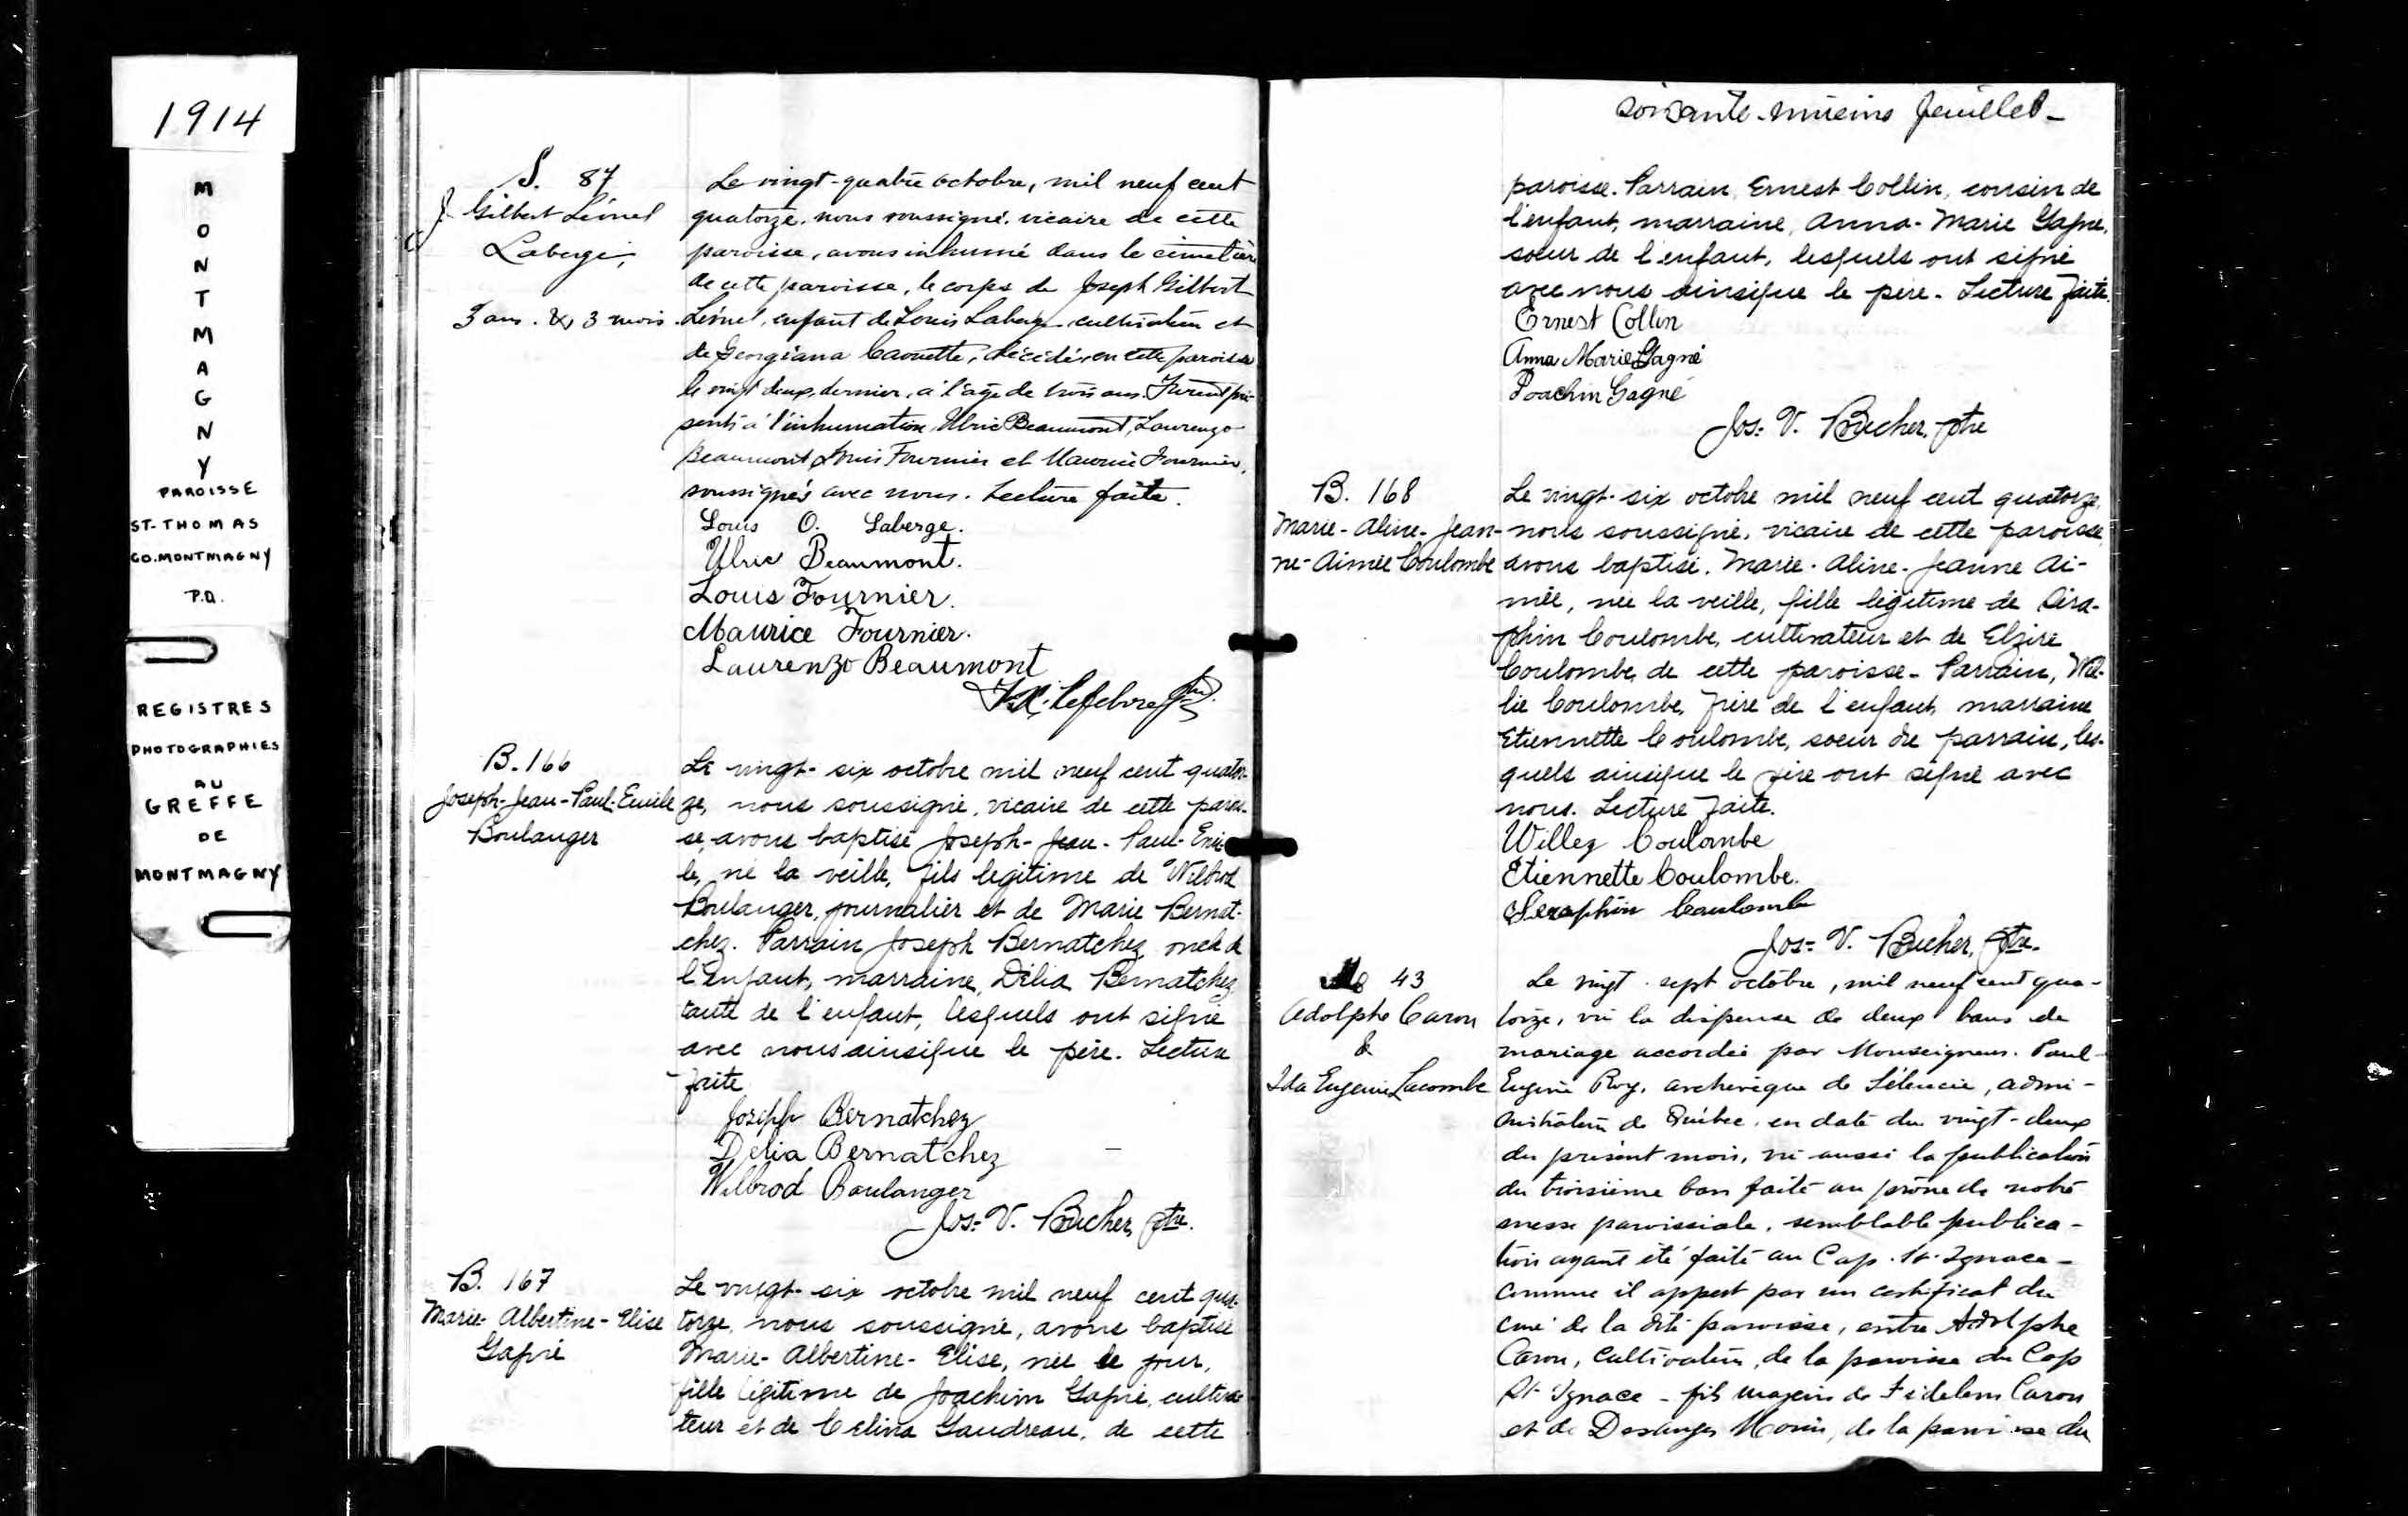 1914
M
O
N
T
M
A
G
N
Y
PAROISSE
ST-THOMAS
CO. MONTMAGNY
P.Q.
REGISTRES
PHOTOGRAPHIES
AU
GREFFE
DE
MONTMAGNY
S. 87
J. Gilbert Léonel
Laberge,
3 ans. & 3 mois.
Le vingt-quatre octobre, mil neuf cent
quatorze, nous soussigné, vicaire de cette
paroisse, avons inhumé dans le cimetière
de cette paroisse, le corps de Joseph Gilbert
Léonel, enfant de Louis Laberge cultivateur et
de Georgiana Caouette, décédé, en cette paroisse
le vingt deux, dernier, à l'âge de trois ans. Furent pré-
sents à l'inhumation, Ulric Beaumont, Laurenzo
Beaumont, Louis Fournier et Maurice Fournier,
soussignés avec nous. Lecture faite.
Louis O. Laberge.
Ulric Beaumont.
Louis Fournier.
Maurice Fournier.
Laurenzo Beaumont
Lefebvre
B. 166
Joseph-Jean-Paul-Emile
Boulanger
Le vingt-six octobre mil neuf cent quator-
ze, nous soussigné, vicaire de cette parois-
se, avons baptisé Joseph-Jean-Paul-Emi-
le, né la veille, fils légitime de Wilbrod
Boulanger, journalier et de Marie Bernat-
chez. Parrain Joseph Bernatchez, oncle de
l'enfant, marraine, Délia Bernatchez,
tante de l'enfant, lesquels ont signé
avec nous ainsique le père. Lecture
faite
Joseph Bernatchez
Delia Bernatchez
Wilbrod Boulanger
Jos: V. Bucher, ptre.
B. 167
Marie-Albertine-Elise
Gagné
Le vingt-six octobre mil neuf cent qua-
torze, nous soussigné, avons baptisé
Marie-Albertine-Elise, née le jour,
fille légitime de Joachim Gagné, cultiva-
teur et de Célina Gaudreau, de cette
soixante-onzième feuillet-
paroisse. Parrain, Ernest Collin, cousin de
l'enfant, marraine, Anna-Marie Gagné,
soeur de l'enfant, lesquels ont signé
avec nous ainsique le père. Lecture faite.
Ernest Collin
Anna Marie Gagné
Joachin Gagné
Jos: V. Bucher, ptre
B. 168
Marie-Aline-Jean-
ne-Aimée Coulombe
Le vingt-six octobre mil neuf cent quatorze,
nous soussigné, vicaire de cette paroisse,
avons baptisé. Marie-Aline-Jeanne Ai-
mée, née la veille, fille légitime de Séra-
phin Coulombe, cultivateur et de Elzire
Coulombe, de cette paroisse. Parrain, Wil-
lie Coulombe, frère de l'enfant, marraine
Etiennette Coulombe, soeur du parrain, les-
quels ainsique le père ont signé avec
nous. Lecture faite.
Willez Coulombe
Etiennette Coulombe.
Seraphin Coulombe
Jos: V. Bucher, ptre.
43
Adolphe Caron
&
Ida Eugenie Lacombe
Le vingt-sept octobre, mil neuf cent qua-
torze, vu la dispense de deux bans de
mariage accordée par Monseigneur Paul-
Eugène Roy, archevêque de Séleucie, admi-
nistrateur de Québec, en date du vingt-deux
du présent mois, vu aussi la publication
du troisième ban faite au prône de notre
messe paroissiale, semblable publica-
tion ayant été faite au Cap-St-Ignace-
comme il appert par un certificat du
curé de la dite paroisse, entre Adolphe
Caron, cultivateur, de la paroisse du Cap
St-Ignace - fils majeur de Fidelem Caron
et de Desanges Morin, de la paroisse du